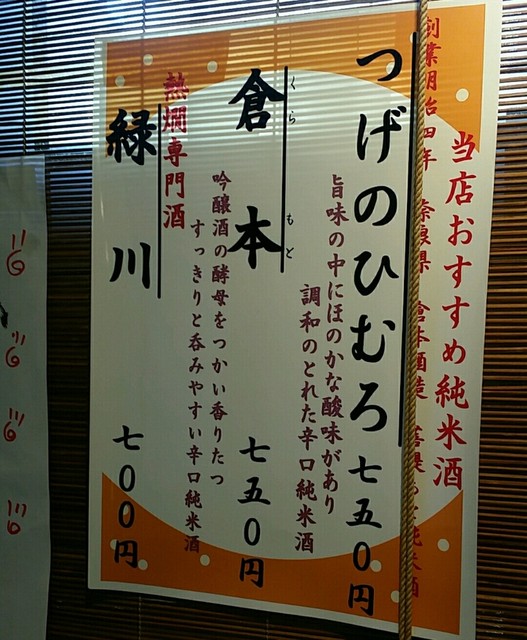 当店おすすめ純米酒
創業明治四年 奈良県 倉本酒造
つげのひむろ 七五〇円
旨味の中にほのかな酸味があり
調和のとれた辛口純米酒
倉本 七五〇円
くら もと
吟醸酒の酵母をつかい香りたつ
すっきりと呑みやすい辛口純米酒
熱燗専門酒
緑川 七〇〇円